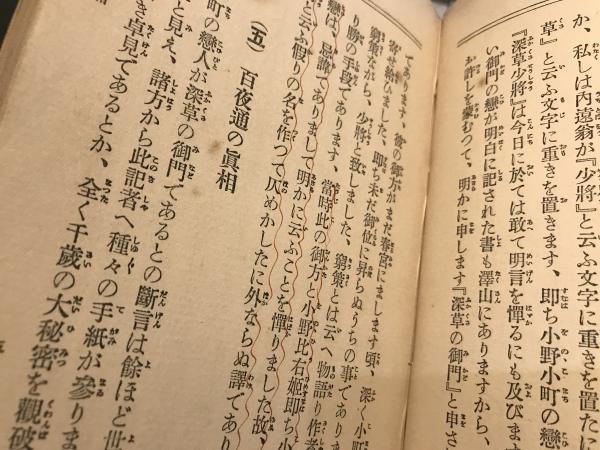 か、私しは内遠翁が『少將』と云ふ文字に重きを
草』と云ふ文字に重きを置きます、即ち小野小町の戀
『深草少將』は今日に於ては敢て明言を憚るにも及びま
い御門の戀が明白に記された書も澤山にありますから、
お許しを蒙むつて、明かに申します『深草の御門』と申さ
であります、後の御方がまだ春宮にまします頃、深く小町
寄せ給ひました、即ち未だ御位に昇らぬうちの事でありま
窮策ながら、少將と致しました、窮策とは云へ物語り作者
り勝の手段であります、當時此の御方と小野比右姫即ち小
戀は、忌諱でありまして明かに云ふことを憚りました故、
と云ふ假りの名を作つて仄めかしたに外ならぬ譯であり
(五) 百夜通の眞相
町の戀人が深草の御門であるとの斷言は餘ほど世
と見え、諸方から此記者へ種々の手紙が參りま
き卓見であるとか、全く千歳の大秘密を觀破